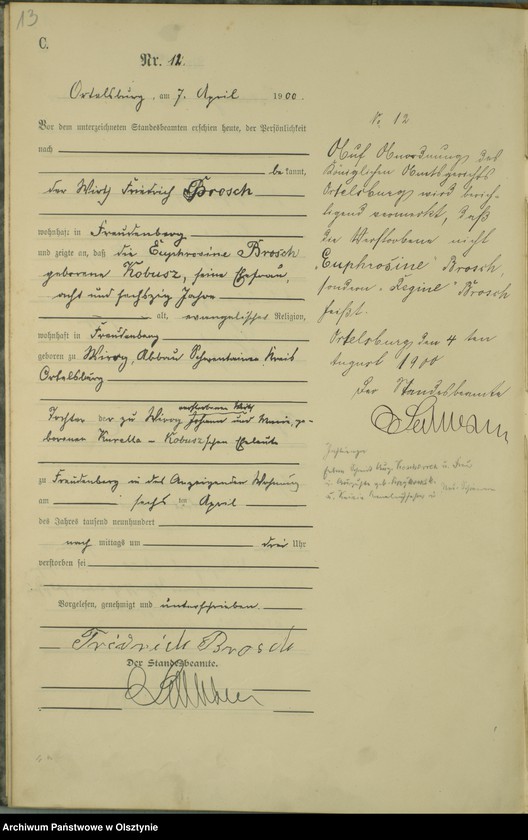 13
C.
Nr. 12.
Ortelsburg, am 7. April 1900.
Vor dem unterzeichneten Standesbeamten erschien heute, der Persönlichkeit
nach
be kannt,
der Wirth Friedrich Brosch
wohnhaft in Freudenberg
und zeigte an, daß die Euphrosine Brosch
geborene Kobusz, seine Ehefrau,
acht und sechszig Jahre
alt, evangelischer Religion,
wohnhaft in Freudenberg
geboren zu Wirog, Abbau Kreis
Ortelsburg
Tochter der zu Wirog verstorbenen Wirth
Johann und Marie, ge-
borenen Kurella - Kobusz'schen Eheleute
zu Freudenberg in des Anzeigenden Wohnung
am sechsten April
des Jahres tausend neunhundert
nach mittags um drei Uhr
verstorben sei
Vorgelesen, genehmigt und unterschrieben.
Friedrich Brosch
Der Standesbeamte.
N. 12
Auf Anordnung des
Königlichen Amtsgerichts
Ortelsburg wird berich-
tigend vermerkt, daß
die Verstorbene nicht
„Euphrosine" Brosch,
sondern „Regine" Brosch
heißt.
Ortelsburg den 4 ten
August 1900
Der Standesbeamte
Archiwum Państwowe w Olsztynie